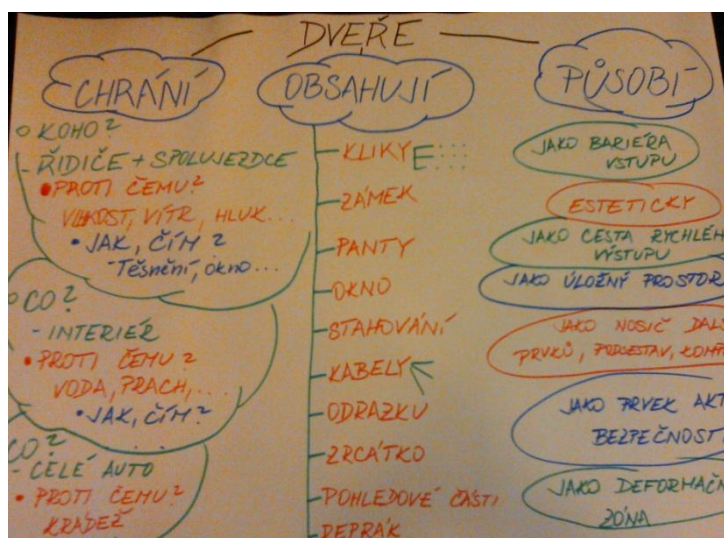 DVEŘE
CHRÁNÍ
KOHO?
- ŘIDIČE + SPOLUJEZDCE
• PROTI ČEMU?
VLHKOST, VÍTR, HLUK...
• JAK, ČÍM?
- Těsnění, okno...
CO?
- INTERIÉR
• PROTI ČEMU?
VODA, PRACH,...
• JAK, ČÍM?
CO?
- CELÉ AUTO
• PROTI ČEMU?
KRÁDEŽ
OBSAHUJÍ
- KLIKY
- ZÁMEK
- PANTY
- OKNO
- STAHOVÁNÍ
- KABELY
- ODRAZKU
- ZRCÁTKO
- POHLEDOVÉ ČÁSTI
- REPRÁK
PŮSOBÍ
JAKO BARIÉRA
VSTUPU
ESTETICKY
JAKO CESTA RYCHLÉH
VÝSTUPU
JAKO ÚLOŽNÝ PROSTOR
JAKO NOSIČ DAL
PRVKŮ, PODSESTAV, KOMP
JAKO PRVEK AKT
BEZPEČNOSTI
JAKO DEFORMAČN
ZÓNA